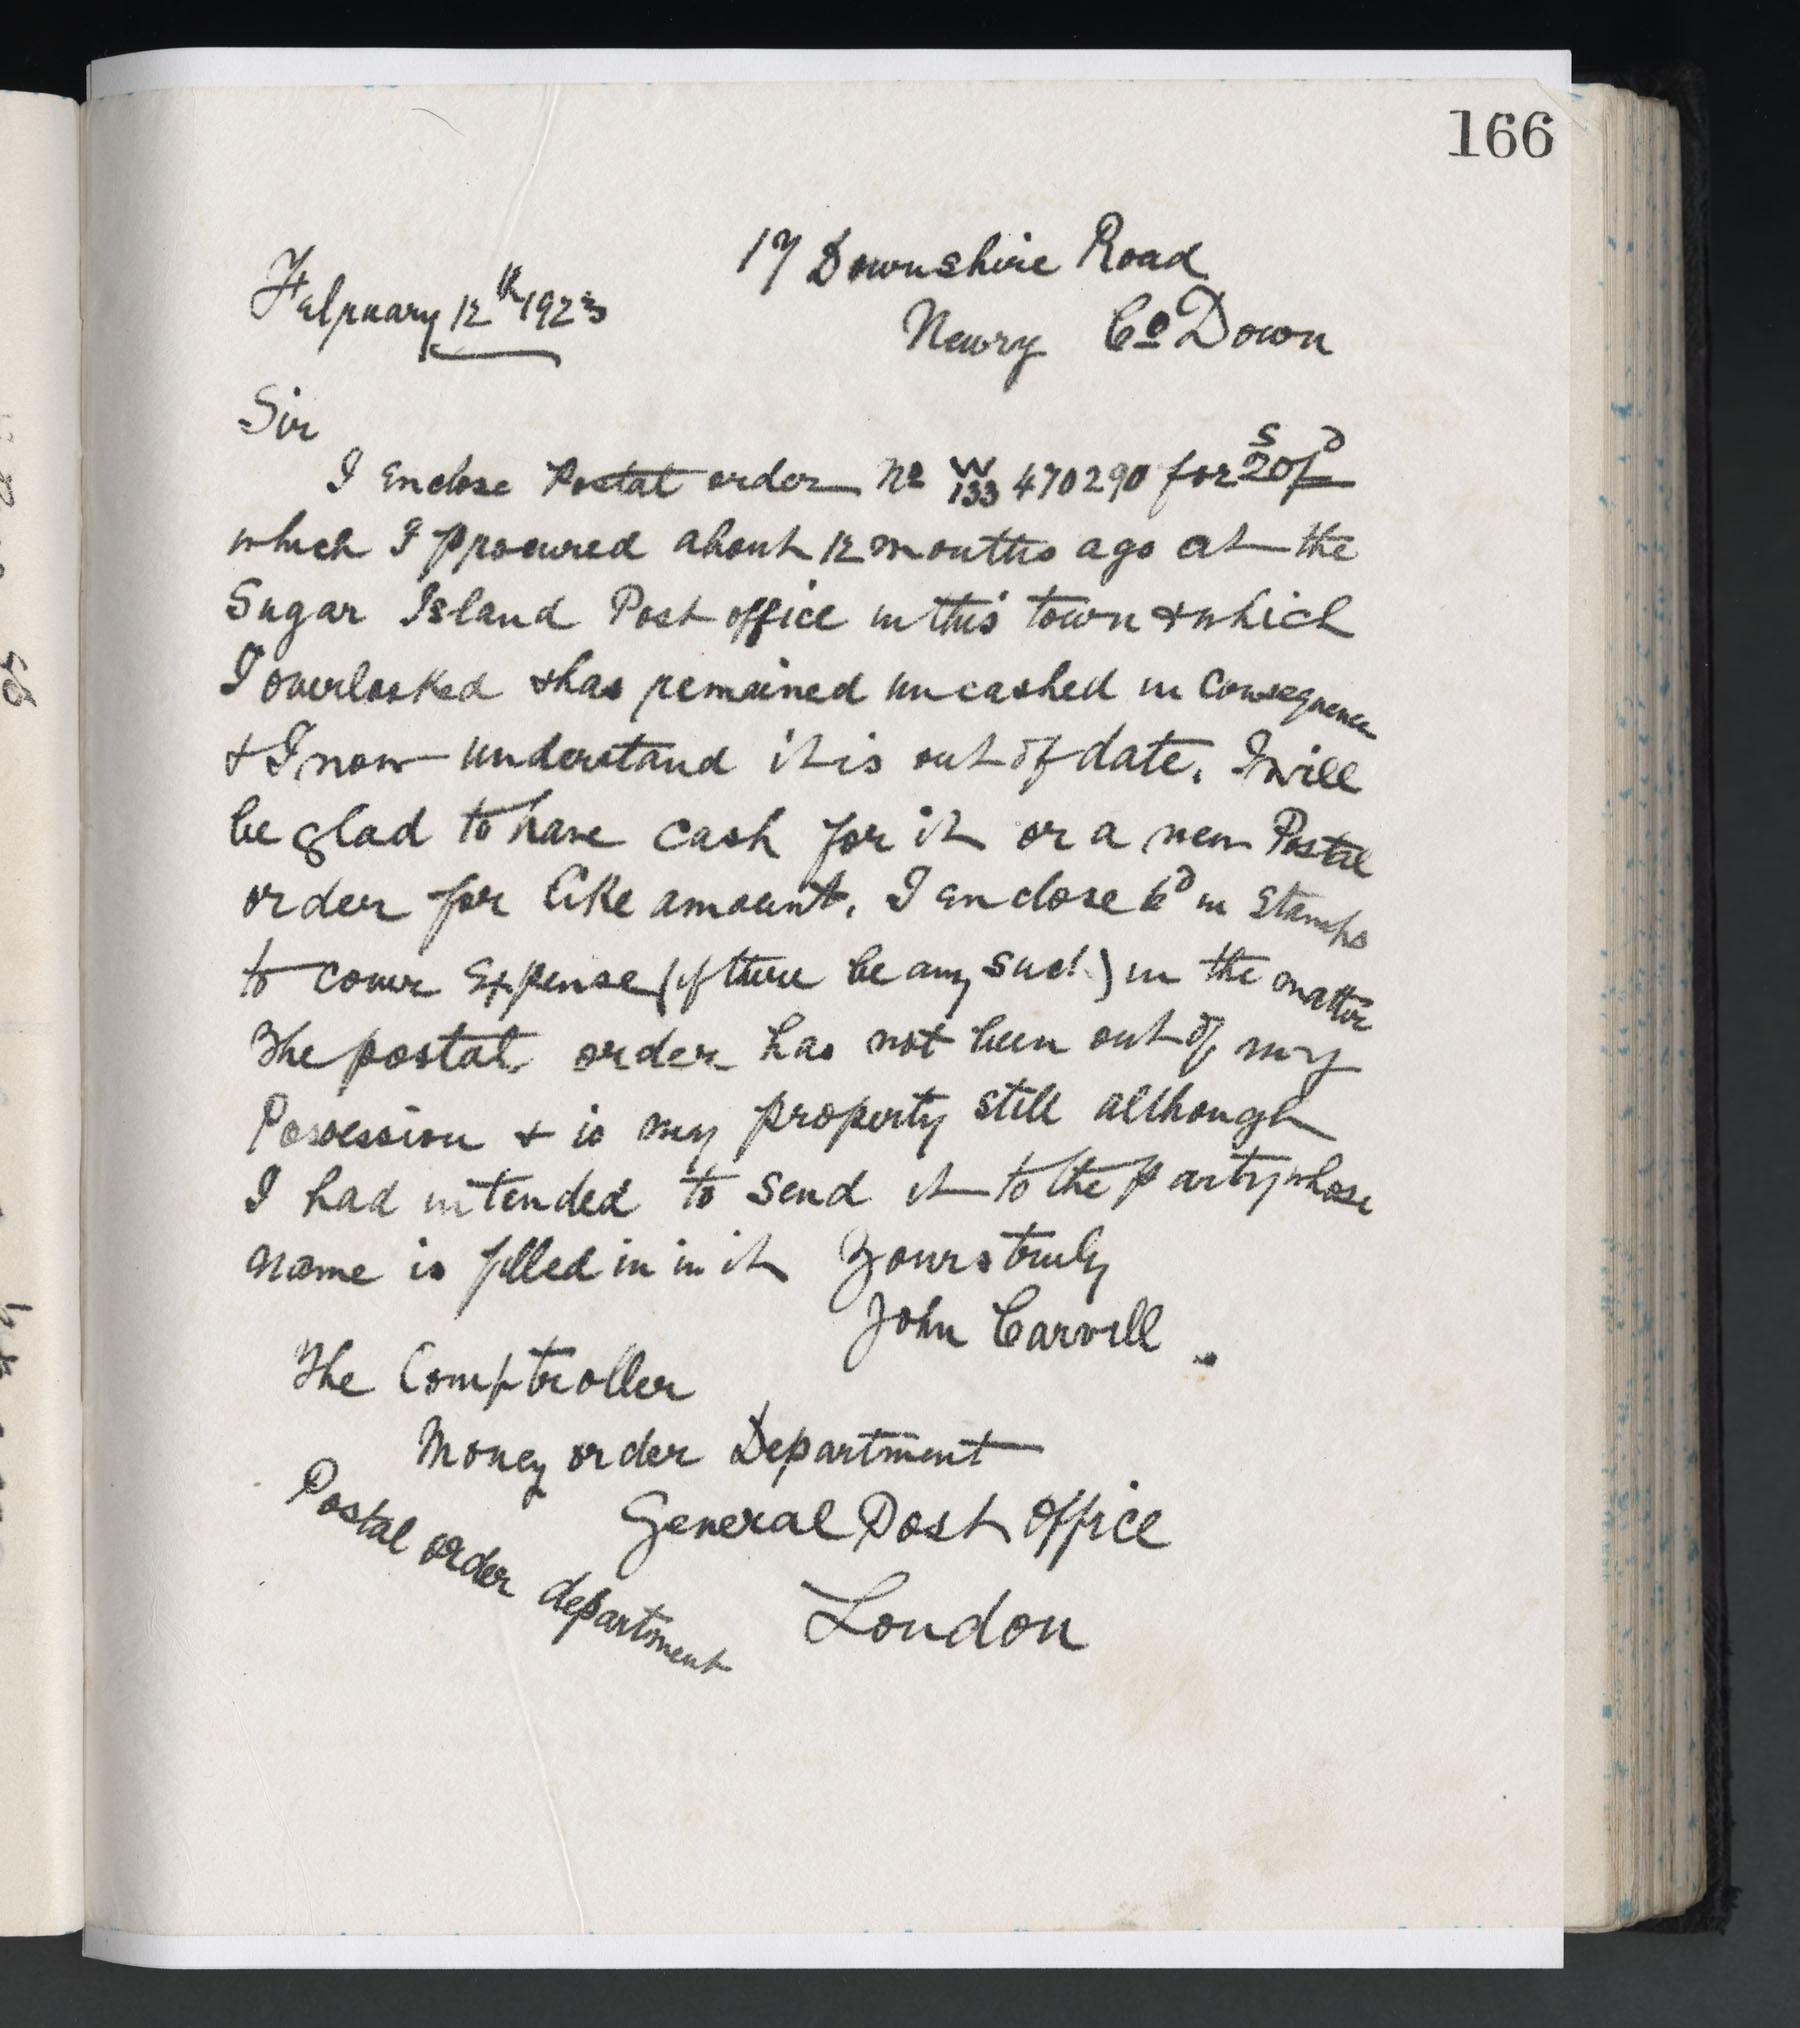 166
17 Downshire Road
February 12th 1923
Newry Co Down
Sir
I enclose Postal order No W/133 470290 for 20s/-d
which I procured about 12 months ago at the
Sugar Island Post office in this town & which
I overlooked & has remained uncashed in consequence
& I now understand it is out of date. I will
be glad to have cash for it or a new Postal
order for like amount. I enclose 6d in stamps
to cover Expense (if there be any such) in the matter
The postal order has not been out of my
Possession & is my property still although
I had intended to send it to the party whose
name is filled in in it Yours truly
John Carvill.
The Comptroller
Money order Department
General Post office
Postal order department
London